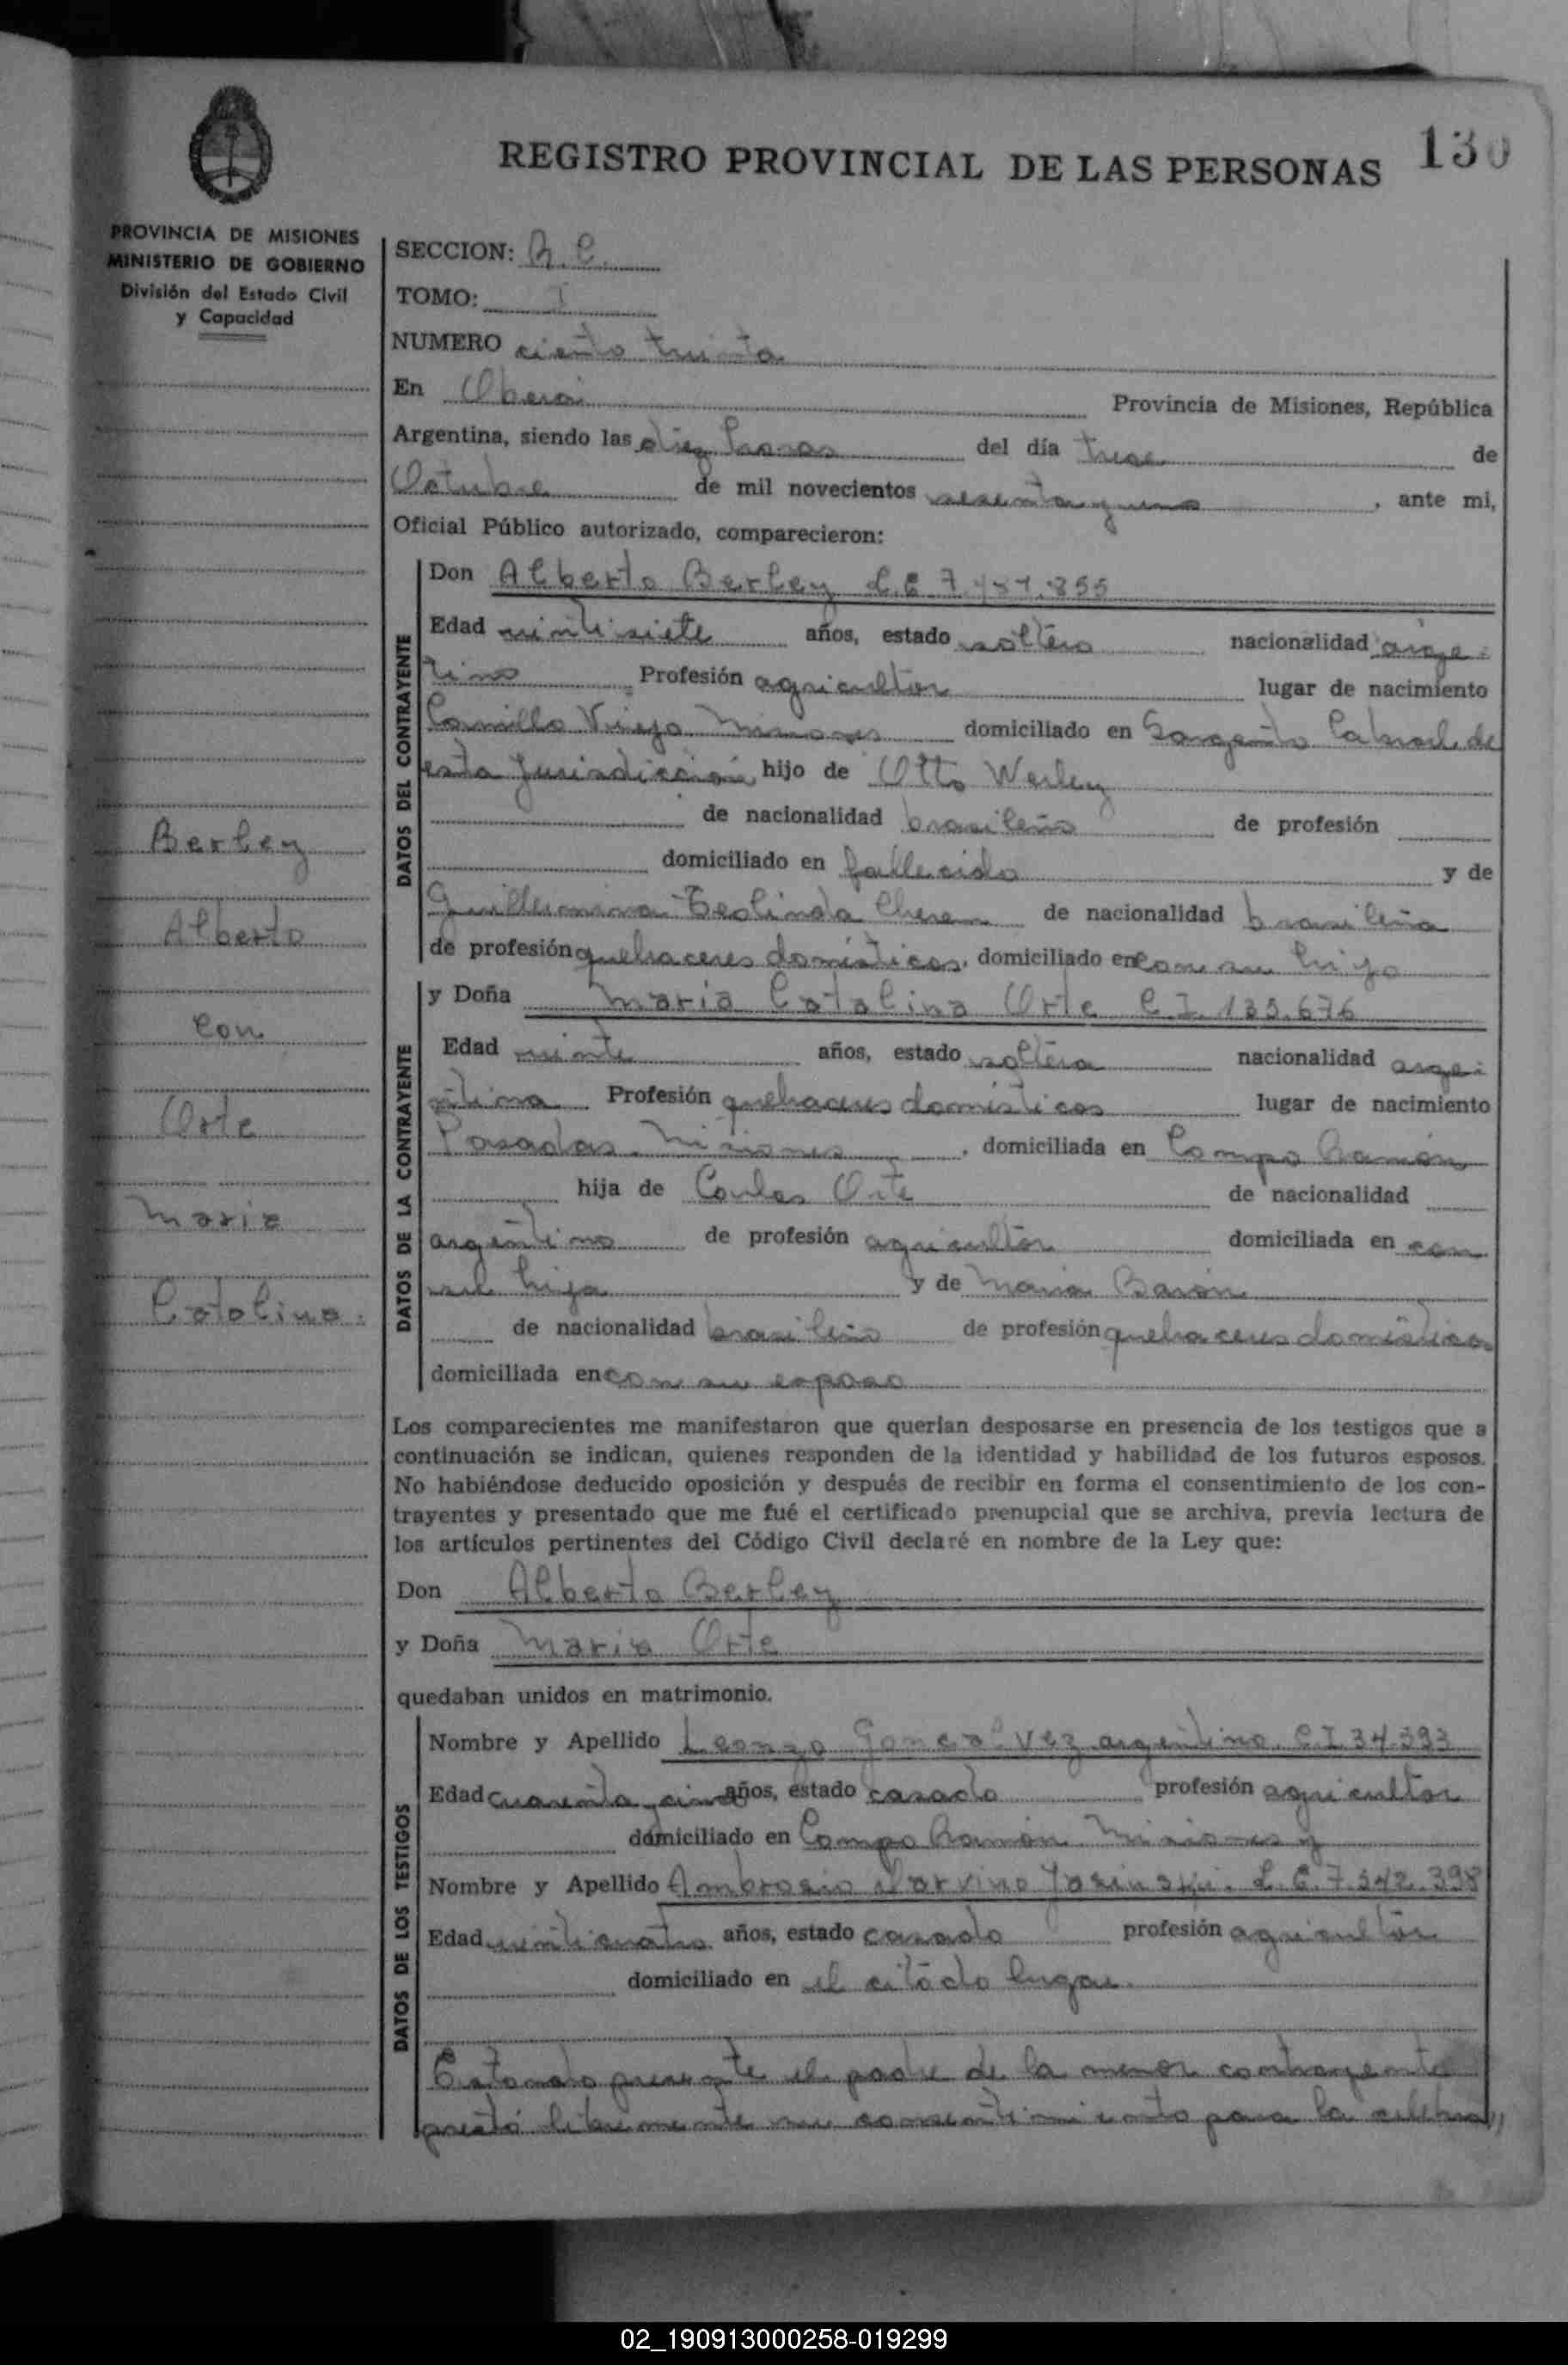 REGISTRO PROVINCIAL DE LAS PERSONAS 130
PROVINCIA DE MISIONES
MINISTERIO DE GOBIERNO
División del Estado Civil
y Capacidad
SECCION:
TOMO: I
NUMERO ciento treinta
En Oberá Provincia de Misiones, República
Argentina, siendo las diez horas del día trece de
Octubre de mil novecientos sesenta y uno, ante mi,
Oficial Público autorizado, comparecieron:
DATOS DEL CONTRAYENTE
Don Alberto Berley L.E.
Edad veintisiete años, estado soltero nacionalidad argen
tino Profesión agricultor lugar de nacimiento
Viejo Misiones domiciliado en Sargento Cabral de
esta Jurisdicción hijo de Otto Werley
de nacionalidad brasileño de profesión
domiciliado en fallecido y de
Guillermina Teolinda de nacionalidad brasileña
de profesión quehaceres domésticos, domiciliado en con su hijo
DATOS DE LA CONTRAYENTE
y Doña Maria Catalina Orte C.I. 135.676
Edad veinte años, estado soltera nacionalidad argen
tina Profesión quehaceres domésticos lugar de nacimiento
Posadas Misiones, domiciliada en Campo Ramón
hija de Carlos Orte de nacionalidad
argentino de profesión agricultor domiciliada en con
su hija y de Maria Barón
de nacionalidad brasileña de profesión quehaceres domésticos
domiciliada en con su esposo
Los comparecientes me manifestaron que querían desposarse en presencia de los testigos que a
continuación se indican, quienes responden de la identidad y habilidad de los futuros esposos.
No habiéndose deducido oposición y después de recibir en forma el consentimiento de los con-
trayentes y presentado que me fué el certificado prenupcial que se archiva, previa lectura de
los artículos pertinentes del Código Civil declaré en nombre de la Ley que:
Don Alberto Berley
y Doña Maria Orte
quedaban unidos en matrimonio.
DATOS DE LOS TESTIGOS
Nombre y Apellido argentino C.I. 34.393
Edad cuarenta y cinco años, estado casado profesión agricultor
domiciliado en Campo Ramón Misiones y
Nombre y Apellido Ambrosio L.E. 7.542.398
Edad veinticuatro años, estado casado profesión agricultor
domiciliado en el citado lugar.
Estando presente el padre de la menor contrayente
prestó libremente su consentimiento para la celebra
Berley
Alberto
con
Orte
Maria
Catalina.
02_190913000258-019299